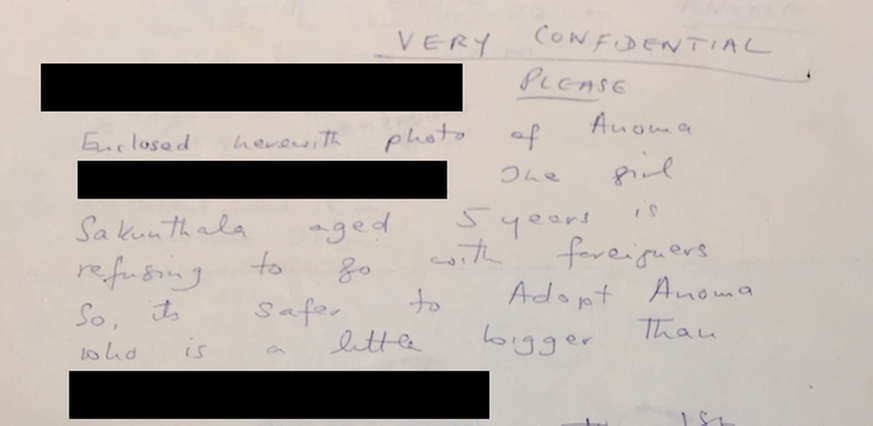 VERY CONFIDENTIAL
PLEASE
Enclosed herewith photo of Anoma
The girl
Sakunthala aged 5 years is
refusing to go with foreigners
So, its safer to Adopt Anoma
who is a little bigger than